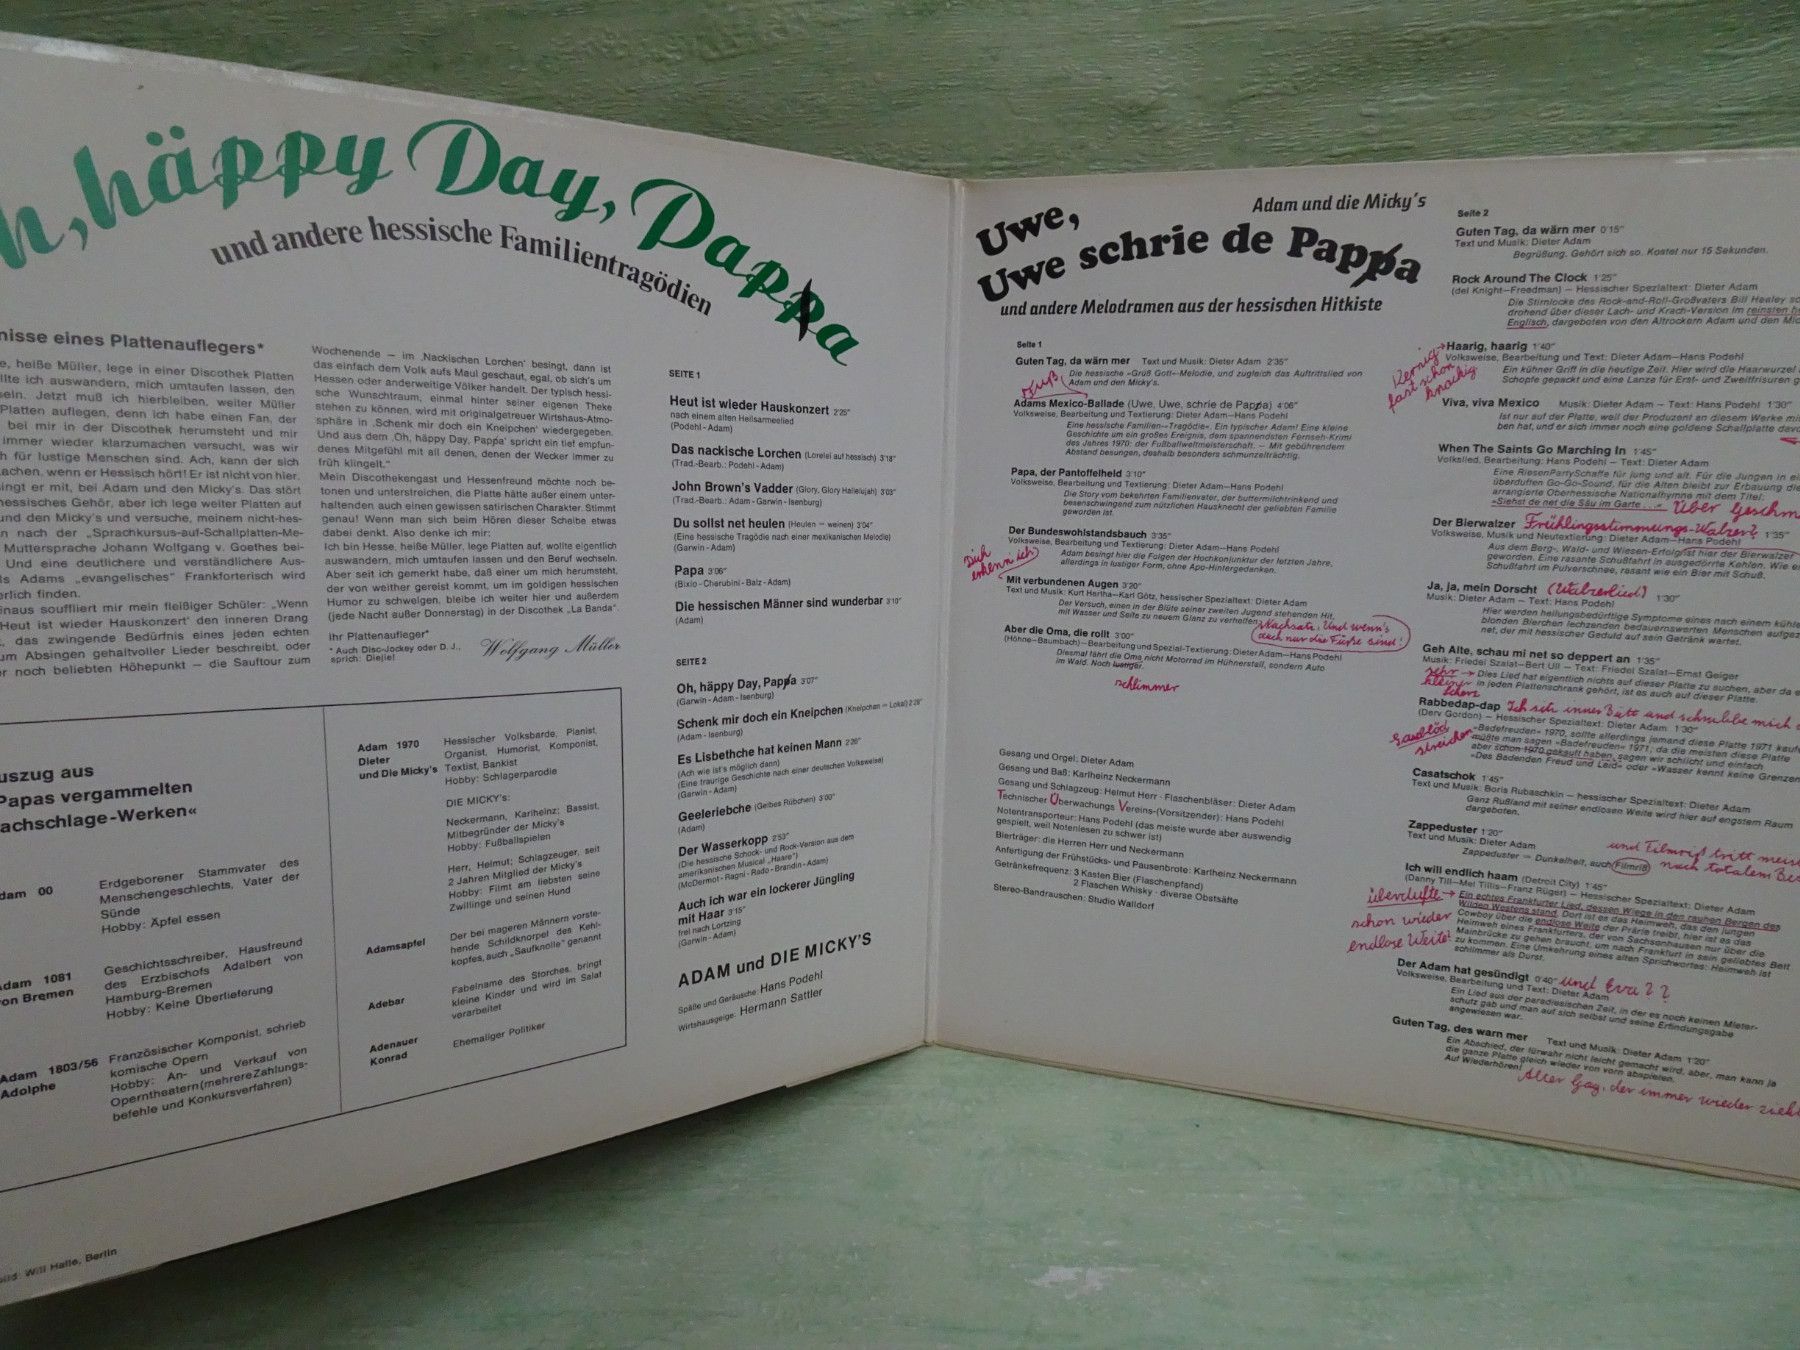 h, häppy Day, Pappa
und andere hessische Familientragödien
nisse eines Plattenauflegers*
e, heiße Müller, lege in einer Discothek Platten
llte ich auswandern, mich umtaufen lassen, den
seln. Jetzt muß ich hierbleiben, weiter Müller
Platten auflegen, denn ich habe einen Fan, der
bei mir in der Discothek herumsteht und mir
immer wieder klarzumachen versucht, was wir
h für lustige Menschen sind. Ach, kann der sich
achen, wenn er Hessisch hört! Er ist nicht von hier.
singt er mit, bei Adam und den Micky's. Das stört
hessisches Gehör, aber ich lege weiter Platten auf
und den Micky's und versuche, meinem nicht-hes-
n nach der „Sprachkursus-auf-Schallplatten-Me-
Muttersprache Johann Wolfgang v. Goethes bei-
Und eine deutlichere und verständlichere Aus-
ls Adams „evangelisches“ Frankforterisch wird
erlich finden.
enaus souffliert mir mein fleißiger Schüler: „Wenn
Heut ist wieder Hauskonzert' den inneren Drang
, das zwingende Bedürfnis eines jeden echten
um Absingen gehaltvoller Lieder beschreibt, oder
r noch beliebten Höhepunkt – die Sauftour zum
Wochenende – im ‚Nackischen Lorchen' besingt, dann ist
das einfach dem Volk aufs Maul geschaut, egal, ob sich's um
Hessen oder anderweitige Völker handelt. Der typisch hessi-
sche Wunschtraum, einmal hinter seiner eigenen Theke
stehen zu können, wird mit originalgetreuer Wirtshaus-Atmo-
sphäre in ‚Schenk mir doch ein Kneipchen' wiedergegeben.
Und aus dem ‚Oh, häppy Day, Pappa' spricht ein tief empfun-
denes Mitgefühl mit all denen, denen der Wecker immer zu
früh klingelt.“
Mein Discothekengast und Hessenfreund möchte noch be-
tonen und unterstreichen, die Platte hätte außer einem unter-
haltenden auch einen gewissen satirischen Charakter. Stimmt
genau! Wenn man sich beim Hören dieser Scheibe etwas
dabei denkt. Also denke ich mir:
Ich bin Hesse, heiße Müller, lege Platten auf, wollte eigentlich
auswandern, mich umtaufen lassen und den Beruf wechseln.
Aber seit ich gemerkt habe, daß einer um mich herumsteht,
der von weither gereist kommt, um im goldigen hessischen
Humor zu schwelgen, bleibe ich weiter hier und außerdem
(jede Nacht außer Donnerstag) in der Discothek „La Banda“.
Ihr Plattenaufleger*
* Auch Disc-Jockey oder D. J.,
sprich: Diejiel
Wolfgang Müller
uszug aus
Papas vergammelten
achschlage-Werken«
dam 00
Erdgeborener Stammvater des
Menschengeschlechts, Vater der
Sünde
Hobby: Äpfel essen
dam 1081
on Bremen
Geschichtsschreiber, Hausfreund
des Erzbischofs Adalbert von
Hamburg-Bremen
Hobby: Keine Überlieferung
Adam 1803/56
Adolphe
Französischer Komponist, schrieb
komische Opern
Hobby: An- und Verkauf von
Operntheatern (mehrere Zahlungs-
befehle und Konkursverfahren)
Adam 1970
Dieter
und Die Micky's
Hessischer Volksbarde, Pianist,
Organist, Humorist, Komponist,
Textist, Bankist
Hobby: Schlagerparodie
DIE MICKY'S:
Neckermann, Karlheinz; Bassist,
Mitbegründer der Micky's
Hobby: Fußballspielen
Herr, Helmut; Schlagzeuger, seit
2 Jahren Mitglied der Micky's
Hobby: Filmt am liebsten seine
Zwillinge und seinen Hund
Adamsapfel
Der bei mageren Männern vorste-
hende Schildknorpel des Kehl-
kopfes, auch „Saufknolle“ genannt
Adebar
Fabelname des Storches, bringt
kleine Kinder und wird im Salat
verarbeitet
Adenauer
Konrad
Ehemaliger Politiker
bild: Will Halle, Berlin
SEITE 1
Heut ist wieder Hauskonzert 2'25"
nach einem alten Heilsarmeelied
(Podehl - Adam)
Das nackische Lorchen (Lorelei auf hessisch) 3'18"
(Trad.-Bearb.: Podehl - Adam)
John Brown's Vadder (Glory, Glory Hallelujah) 3'03"
(Trad.-Bearb.: Adam - Garwin - Isenburg)
Du sollst net heulen (Heulen = weinen) 3'04"
(Eine hessische Tragödie nach einer mexikanischen Melodie)
(Garwin - Adam)
Papa 3'06"
(Bixio - Cherubini - Balz - Adam)
Die hessischen Männer sind wunderbar 3'10"
(Adam)
SEITE 2
Oh, häppy Day, Pappa 3'07"
(Garwin - Adam - Isenburg)
Schenk mir doch ein Kneipchen (Kneipchen = Lokal) 2'28"
(Adam - Isenburg)
Es Lisbethche hat keinen Mann 2'26"
(Ach wie ist's möglich dann)
(Eine traurige Geschichte nach einer deutschen Volksweise)
(Garwin - Adam)
Geeleriebche (Gelbes Rübchen) 3'00"
(Adam)
Der Wasserkopp 2'53"
(Die hessische Schock- und Rock-Version aus dem
amerikanischen Musical „Haare“)
(McDermot - Ragni - Rado - Brandin - Adam)
Auch ich war ein lockerer Jüngling
mit Haar 3'15"
frei nach Lortzing
(Garwin - Adam)
ADAM und DIE MICKY'S
Späße und Geräusche: Hans Podehl
Wirtshausgeige: Hermann Sattler
Adam und die Micky's
Uwe,
Uwe schrie de Pappa
und andere Melodramen aus der hessischen Hitkiste
Seite 1
Guten Tag, da wärn mer Text und Musik: Dieter Adam 2'35"
Die hessische »Grüß Gott«-Melodie, und zugleich das Auftrittslied von
Adam und den Micky's.
Adams Mexico-Ballade (Uwe, Uwe, schrie de Pappa) 4'06"
Volksweise, Bearbeitung und Textierung: Dieter Adam–Hans Podehl
Eine hessische Familien-»Tragödie«. Ein typischer Adam! Eine kleine
Geschichte um ein großes Ereignis, dem spannendsten Fernseh-Krimi
des Jahres 1970: der Fußballweltmeisterschaft. – Mit gebührendem
Abstand besungen, deshalb besonders schmunzelträchtig.
Papa, der Pantoffelheld 3'10"
Volksweise, Bearbeitung und Textierung: Dieter Adam–Hans Podehl
Die Story vom bekehrten Familienvater, der buttermilchtrinkend und
besenschwingend zum nützlichen Hausknecht der geliebten Familie
geworden ist.
Der Bundeswohlstandsbauch 3'35"
Volksweise, Bearbeitung und Textierung: Dieter Adam–Hans Podehl
Adam besingt hier die Folgen der Hochkonjunktur der letzten Jahre,
allerdings in lustiger Form, ohne Apo-Hintergedanken.
Dich
erkenn ich)
Mit verbundenen Augen 3'20"
Text und Musik: Kurt Hertha–Karl Götz, hessischer Spezialtext: Dieter Adam
Der Versuch, einen in der Blüte seiner zweiten Jugend stehenden Hit,
mit Wasser und Seife zu neuem Glanz zu verhelfen.
Nachsatz: Und wenn's
auch nur die Füße sind!
Aber die Oma, die rollt 3'00"
(Höhne–Baumbach)–Bearbeitung und Spezial-Textierung: Dieter Adam–Hans Podehl
Diesmal fährt die Oma nicht Motorrad im Hühnerstall, sondern Auto
im Wald. Noch lustiger.
schlimmer
Gesang und Orgel: Dieter Adam
Gesang und Baß: Karlheinz Neckermann
Gesang und Schlagzeug: Helmut Herr · Flaschenbläser: Dieter Adam
Technischer Überwachungs Vereins-(Vorsitzender): Hans Podehl
Notentransporteur: Hans Podehl (das meiste wurde aber auswendig
gespielt, weil Notenlesen zu schwer ist)
Bierträger: die Herren Herr und Neckermann
Anfertigung der Frühstücks- und Pausenbrote: Karlheinz Neckermann
Getränkefrequenz: 3 Kasten Bier (Flaschenpfand)
2 Flaschen Whisky · diverse Obstsäfte
Stereo-Bandrauschen: Studio Walldorf
Seite 2
Guten Tag, da wärn mer 0'15"
Text und Musik: Dieter Adam
Begrüßung. Gehört sich so. Kostet nur 15 Sekunden.
Rock Around The Clock 1'25"
(del Knight–Freedman) – Hessischer Spezialtext: Dieter Adam
Die Stirnlocke des Rock-and-Roll-Großvaters Bill Healey sc
drohend über dieser Lach- und Krach-Version im reinsten he
Englisch, dargeboten von den Altrockern Adam und den Mic
Kernig
fast schon
knackig
Haarig, haarig 1'40"
Volksweise, Bearbeitung und Text: Dieter Adam–Hans Podehl
Ein kühner Griff in die heutige Zeit. Hier wird die Haarwurzel
Schopfe gepackt und eine Lanze für Erst- und Zweitfrisuren g
Viva, viva Mexico Musik: Dieter Adam – Text: Hans Podehl 1'30"
Ist nur auf der Platte, weil der Produzent an diesem Werke mi
ben hat, und er sich immer noch eine goldene Schallplatte davo
When The Saints Go Marching In 1'45"
Volkslied, Bearbeitung: Hans Podehl – Text: Dieter Adam
Eine RiesenPartySchaffe für jung und alt. Für die Jungen in ei
überduften Go-Go-Sound, für die Alten bleibt zur Erbauung die
arrangierte Oberhessische Nationalhymne mit dem Titel:
»Siehst de net die Säu im Garte ...« Über Geschm
Der Bierwalzer Frühlingsstimmungs-Walzer? 1'35"
Volksweise, Musik und Neutextierung: Dieter Adam–Hans Podehl
Aus dem Berg-, Wald- und Wiesen-Erfolg ist hier der Bierwalzer
geworden. Eine rasante Schußfahrt in ausgedörrte Kehlen. Wie ei
Schußfahrt im Pulverschnee, rasant wie ein Bier mit Schuß.
Ja, ja, mein Dorscht 1'30"
Musik: Dieter Adam – Text: Hans Podehl
Hier werden heilungsbedürftige Symptome eines nach einem kühle
blonden Bierchen lechzenden bedauernswerten Menschen aufgez
net, der mit hessischer Geduld auf sein Getränk wartet.
Geh Alte, schau mi net so deppert an 1'35"
Musik: Friedel Szalat–Bert Ull – Text: Friedel Szalat–Ernst Geiger
sehr
kleiner
Scherz
Dies Lied hat eigentlich nichts auf dieser Platte zu suchen, aber da e
in jeden Plattenschrank gehört, ist es auch auf dieser Platte.
Rabbedap-dap Ich seh inner Bütt und schrubbe mich
(Derv Gordon) – Hessischer Spezialtext: Dieter Adam 1'30"
»Badefreuden« 1970, sollte allerdings jemand diese Platte 1971 kaufe
müßte man sagen »Badefreuden« 1971; da die meisten diese Platte
aber schon 1970 gekauft haben, sagen wir schlicht und einfach
»Des Badenden Freud und Leid« oder »Wasser kennt keine Grenzen
Saublöd
streichen
Casatschok 1'45"
Text und Musik: Boris Rubaschkin – hessischer Spezialtext: Dieter Adam
Ganz Rußland mit seiner endlosen Weite wird hier auf engstem Raum
dargeboten.
Zappeduster 1'20"
Text und Musik: Dieter Adam
Zappeduster – Dunkelheit, auch Filmriß
und Filmriß tritt meist
nach totalem Be
Ich will endlich haam (Detroit City) 1'45"
(Danny Till–Mel Tillis–Franz Rüger) – Hessischer Spezialtext: Dieter Adam
Ein echtes Frankfurter Lied, dessen Wiege in den rauhen Bergen des
Wilden Westens stand. Dort ist es das Heimweh, das den jungen
Cowboy über die endlose Weite der Prärie treibt, hier ist es das
Heimweh eines Frankfurters, der von Sachsenhausen nur über die
Mainbrücke zu gehen braucht, um nach Frankfurt in sein geliebtes Bett
zu kommen. Eine Umkehrung eines alten Sprichwortes: Heimweh ist
schlimmer als Durst.
schon wieder
endlose Weite!
Der Adam hat gesündigt 0'40" und Eva??
Volksweise, Bearbeitung und Text: Dieter Adam
Ein Lied aus der paradiesischen Zeit, in der es noch keinen Mieter-
schutz gab und man auf sich selbst und seine Erfindungsgabe
angewiesen war.
Guten Tag, des warn mer Text und Musik: Dieter Adam 1'20"
Ein Abschied, der fürwahr nicht leicht gemacht wird, aber, man kann ja
die ganze Platte gleich wieder von vorn abspielen.
Auf Wiederhören!
Alter Gag, der immer wieder zieht